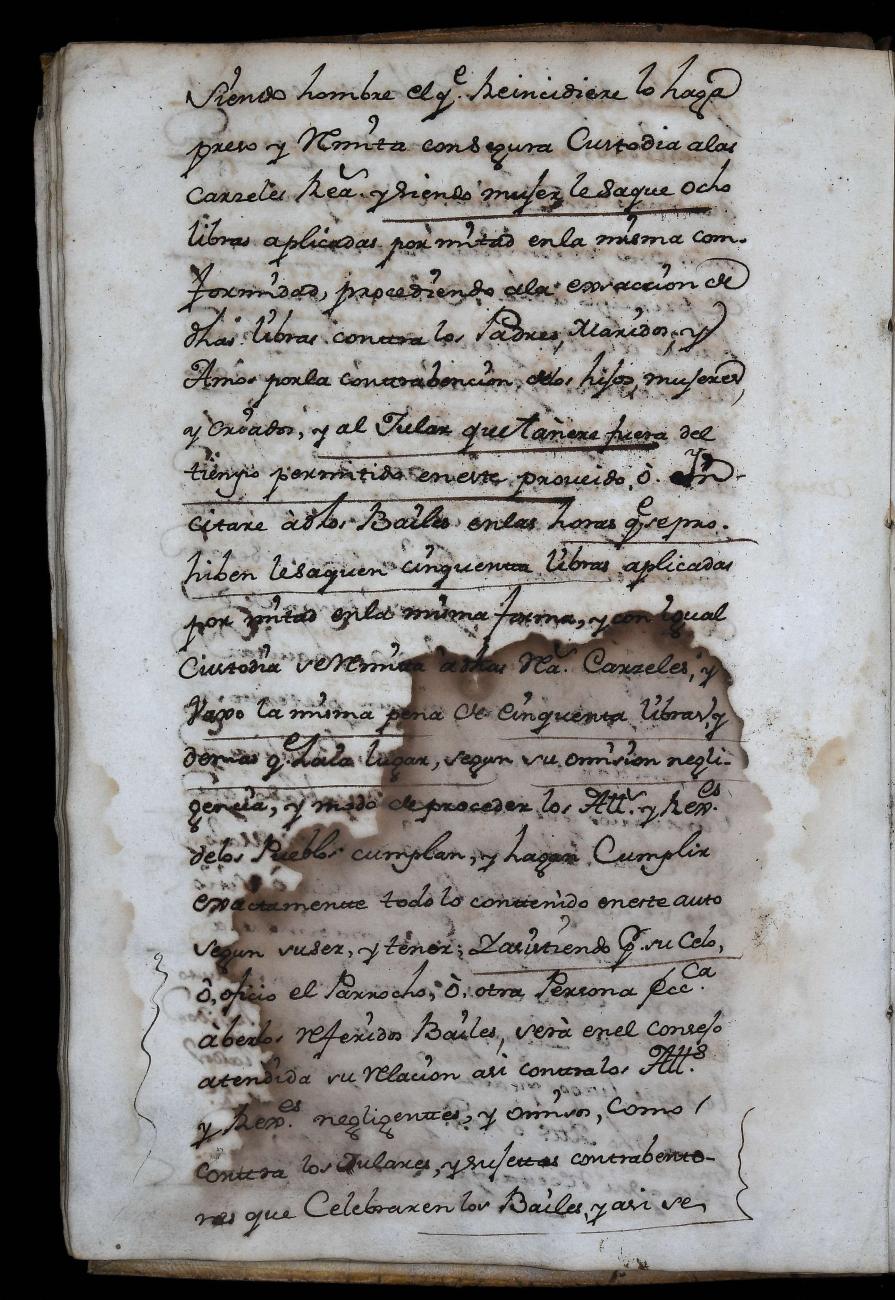 Siendo hombre el q.e Reincidiere lo haga
preso y Remita con segura Custodia a las
Carzeles Rea.s y siendo muser le saque ocho
libras aplicadas por mitad en la misma com-
formidad, procediendo a la exaccion de
dhas libras contra los Padres, Maridos, y
Amos por la contrabencion de los hisos, museres,
y criados, y al Jular que tañere fuera del
tiempo permitido en este proveido, ò.
citare à dhos Bailes en las horas q.e se pro-
hiben le saquen cinquenta libras aplicadas
por mitad en la misma forma, y con igual
Custodia se Remita à dhas Ra.s Carzeles, y
vaxo la misma pena de cinquenta libras, y
demas q.e haia lugar, segun su omision negli-
gencia, y modo de proceder los Att.s y Rex.es
de los Pueblos cumplan, y hagan Cumplir
exactamente todo lo contenido en este auto
segun su ser, y tenor; Y asistiendo p.r su Celo,
ò, oficio el Parrocho, ò, otra Persona Ecc.ca
à ber los referidos Bailes, serà en el conseso
atendida su relacion asi contra los Att.s
y Rex.es negligentes, y omisos, como
contra los Julares, y susettos contrabento-
res que Celebraren los Bailes, y asi se